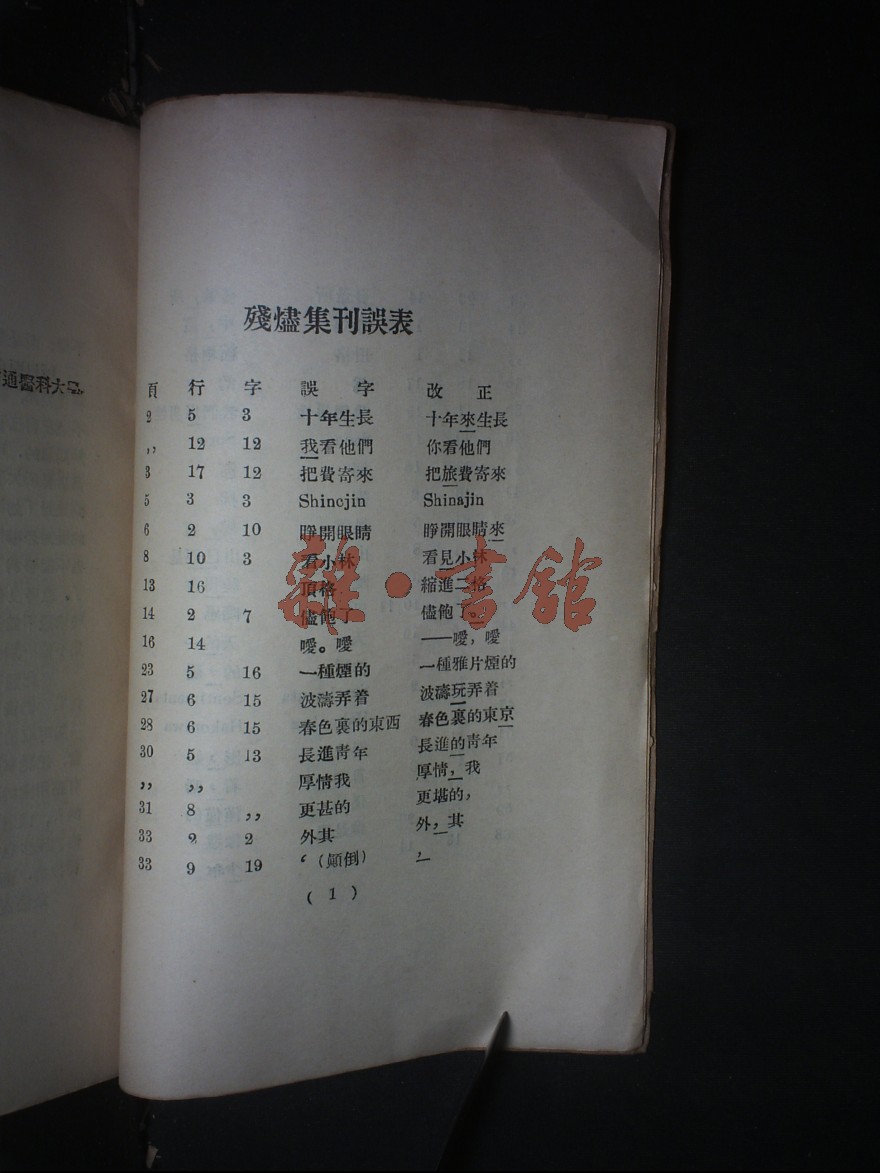 殘燼集刊誤表
頁 行 字 誤字 改正
2 5 3 十年生長 十年來生長
,, 12 12 我看他們 你看他們
3 17 12 把費寄來 把旅費寄來
5 3 3 Shincjin Shinajin
6 2 10 睜開眼睛 睜開眼睛來
8 10 3 看小林 看見小林
13 16 頂格 縮進二格
14 2 7 儘飽了 儘飽了。
16 14 噯。噯 ——噯,噯
23 5 16 一種煙的 一種雅片煙的
27 6 15 波濤弄着 波濤玩弄着
28 6 15 春色裏的東西 春色裏的東京
30 5 13 長進靑年 長進的靑年
,, ,, 厚情我 厚情,我
31 8 ,, 更甚的 更堪的,
33 2 2 外其 外,其
33 9 19 ‘(顚倒) ,
( 1 )
通醫科大
雜·書館